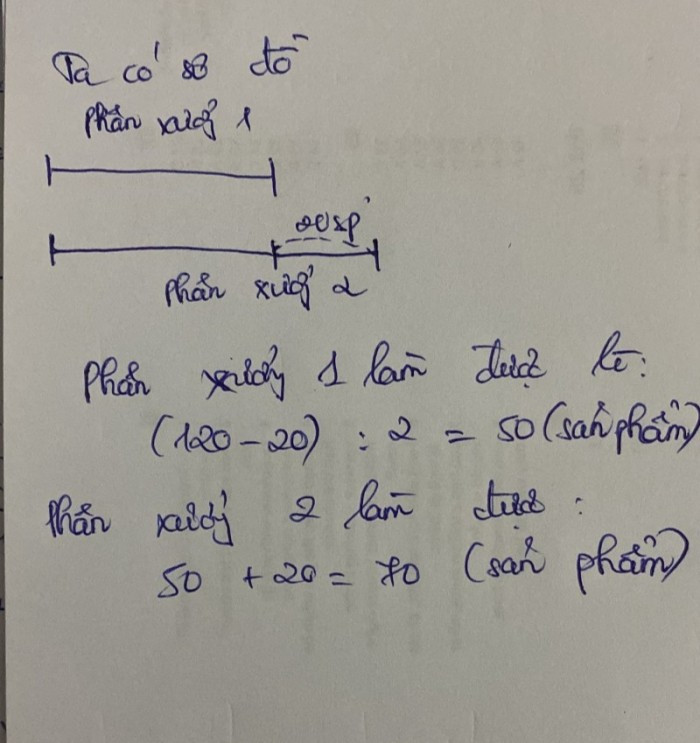 Ta có sơ đồ
phân xưởng 1
20sp
phân xưởng 2
Phân xưởng 1 làm được là:
(120-20) : 2 = 50 (sản phẩm)
Phân xưởng 2 làm được :
50 + 20 = 70 (sản phẩm)